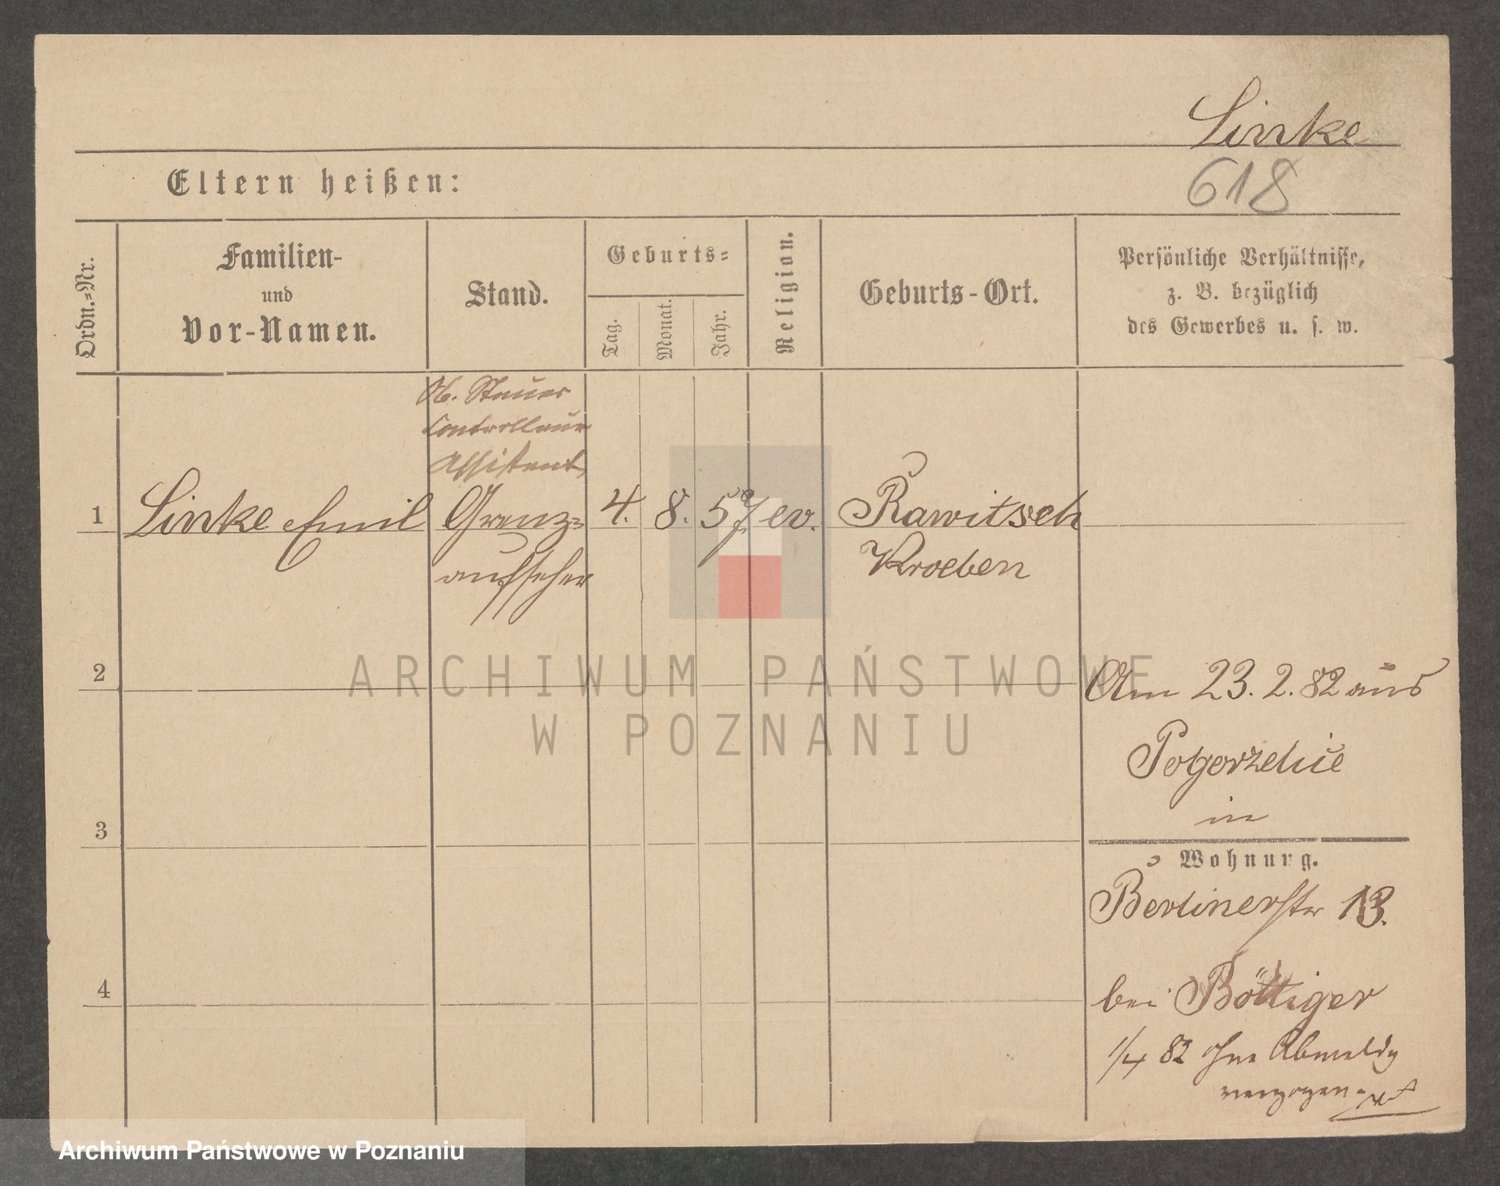 Linke
618
Eltern heißen:
Ordn.-Nr.
Familien-
und
Vor-Namen.
Stand.
Geburts-
Tag.
Monat.
Jahr.
Religion.
Geburts-Ort.
Persönliche Verhältnisse,
z. B. bezüglich
des Gewerbes u. s. w.
Ob. Steuer
Controlleur
Assistent
1 Linke Emil Grenz= 4. 8. 57 ev. Rawitsch
aufseher Kroeben
2
Am 23. 2. 82 aus
Pogorzelice
in
3
Wohnung.
Berlinerstr 13.
4
bei Böttiger
1/4 82 ohne Abmeldg
verzogen.
ARCHIWUM PAŃSTWOWE
W POZNANIU
Archiwum Państwowe w Poznaniu